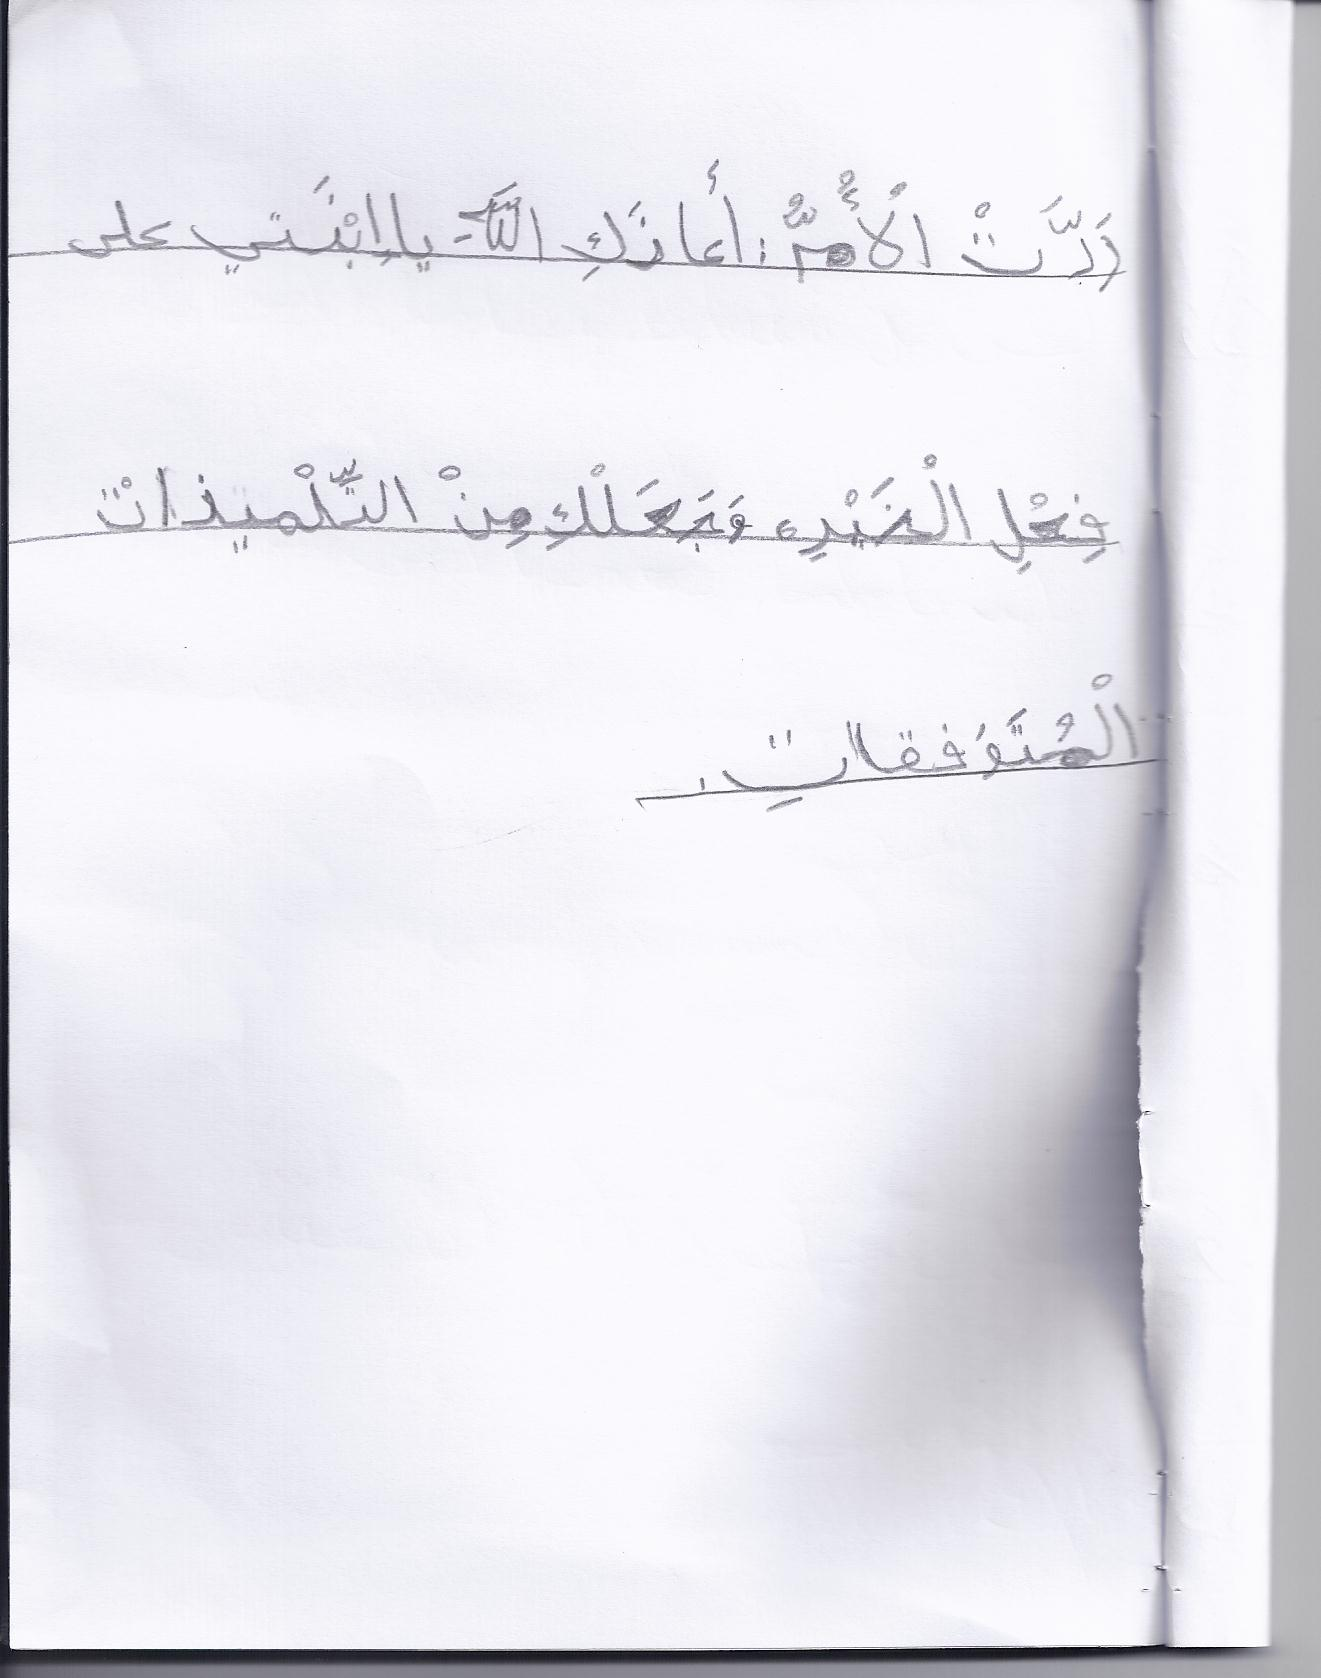 رَدَّتْ الْأُمُّ : أَعانَكِ اللَّهُ يا إِبْنَتي على
فِعْلِ الْخَيْرِ، وَجَعَلْكِ مِنْ التِّلْميذاتْ
الْمُتَوَفقاتِ.